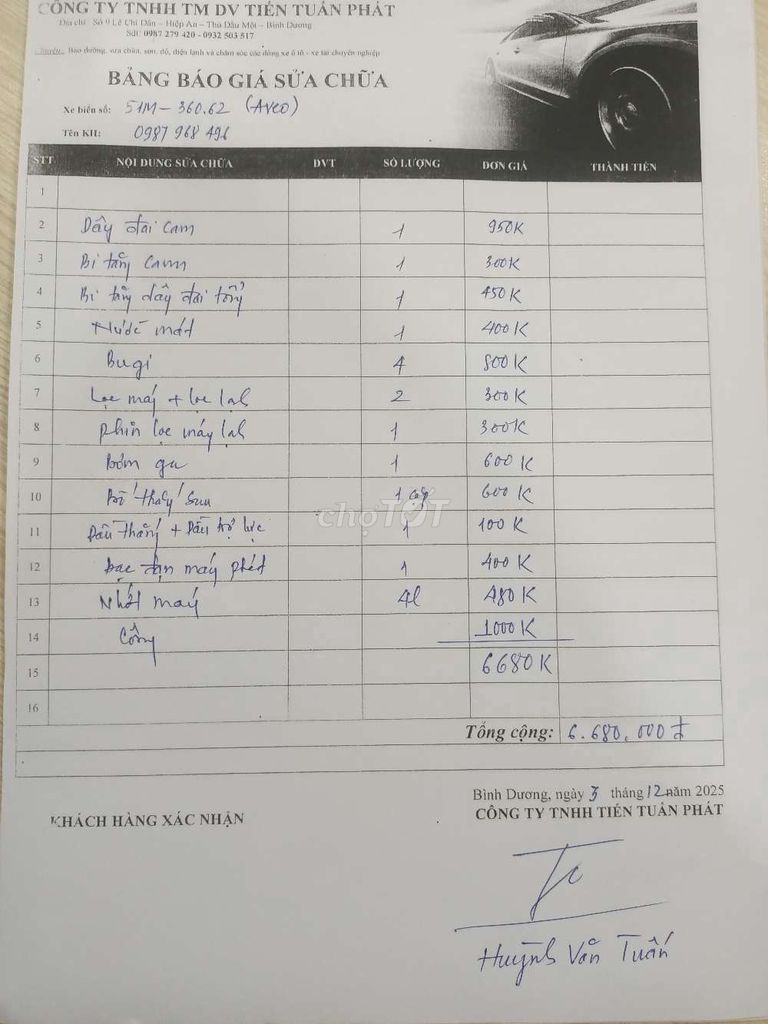 CÔNG TY TNHH TM DV TIẾN TUẤN PHÁT
Địa chỉ: Số 9 Lê Chí Dân – Hiệp An – Thủ Dầu Một – Bình Dương
Sdt: 0987 279 420 - 0932 503 517
Chuyên: Bảo dưỡng, sửa chữa, sơn, độ, điện lạnh và chăm sóc các dòng xe ô tô - xe tải chuyên nghiệp
BẢNG BÁO GIÁ SỬA CHỮA
Xe biển số: 51M - 360.62 (Aveo)
Tên KH: 0987 968 496
STT NỘI DUNG SỬA CHỮA DVT SỐ LƯỢNG ĐƠN GIÁ THÀNH TIỀN
1
2 Dây đai cam 1 950K
3 Bi tăng cam 1 300K
4 Bi tăng dây đai tổng 1 450K
5 Nước mát 1 400K
6 Bugi 4 800K
7 Lọc máy + lọc lạnh 2 300K
8 phin lọc máy lạnh 1 300K
9 Bơm ga 1 600K
10 Bố thắng sau 1 cặp 600K
11 Dầu thắng + Dầu trợ lực 1 100K
12 Bạc đạn máy phát 1 400K
13 Nhớt máy 4l 480K
14 Công 1000K
15 6680K
16
Tổng cộng: 6.680.000đ
Bình Dương, ngày 3 tháng 12 năm 2025
KHÁCH HÀNG XÁC NHẬN
CÔNG TY TNHH TIẾN TUẤN PHÁT
Huỳnh Văn Tuấn
chợTỐT